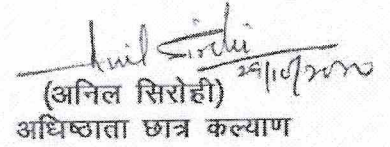 Anil Sirohi
29/10/2020
(अनिल सिरोही)
अधिष्ठाता छात्र कल्याण